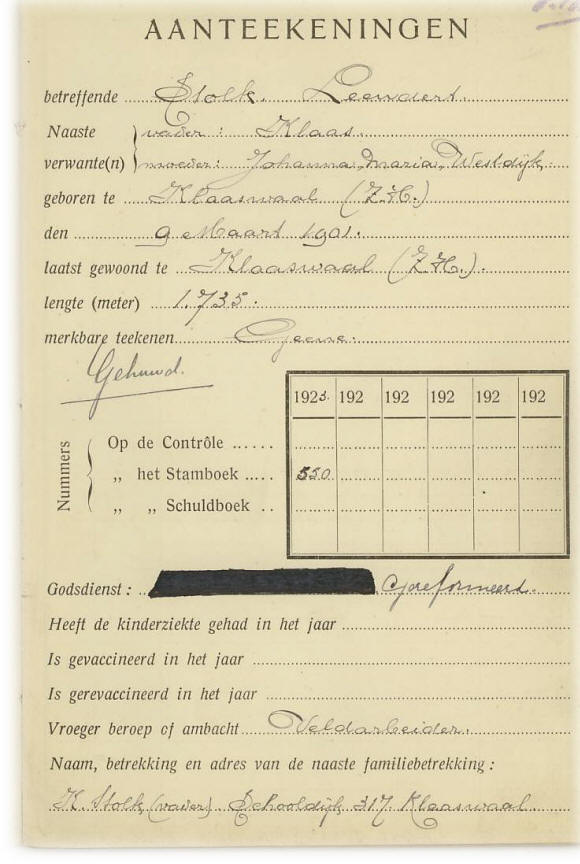 AANTEEKENINGEN
betreffende Stolk. Leendert.
Naaste verwante(n) vader: Klaas.
moeder: Johanna, Maria, Westdijk.
geboren te Klaaswaal (Z.H.)
den 9 Maart 1901.
laatst gewoond te Klaaswaal (Z.H.).
lengte (meter) 1.735.
merkbare teekenen Geene.
Gehuwd.
1923. 192 192 192 192 192
Nummers
Op de Contrôle
„ het Stamboek 550
„ „ Schuldboek
Godsdienst: Gereformeerd.
Heeft de kinderziekte gehad in het jaar
Is gevaccineerd in het jaar
Is gerevaccineerd in het jaar
Vroeger beroep of ambacht Veldarbeider.
Naam, betrekking en adres van de naaste familiebetrekking:
K. Stolk, (vader). Schooldijk 317, Klaaswaal.